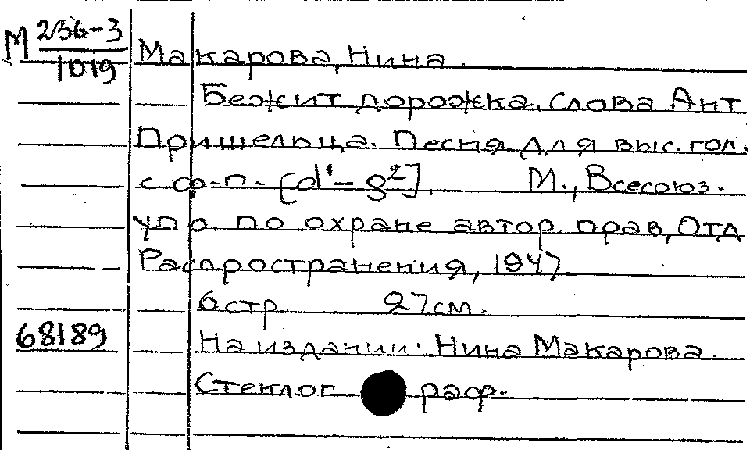 М 236-3
1019
Макарова, Нина.
Бежит дорожка. Слова Ант
Пришельца. Песня для выс. гол.
с ф-п. [d'-g²]. М., Всесоюз.
упр по охране автор. прав, Отд
Распространения, 1947
6 стр 27 см.
68189
На издании: Нина Макарова.
Стеклограф.